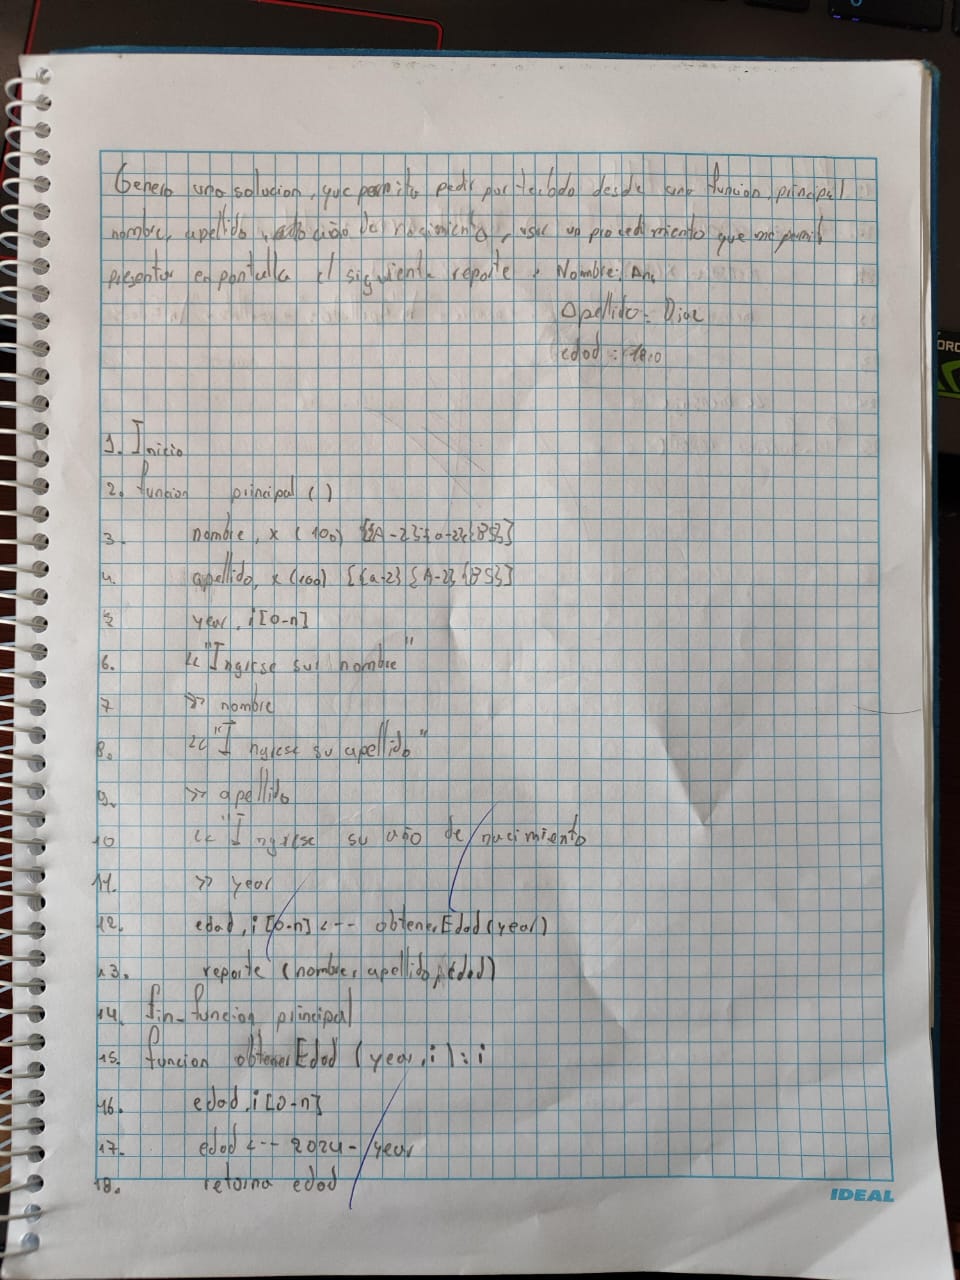 Genero una solucion, que permita pedir por teclado desde una funcion principal
nombre, apellido, año de nacimiento, usar un procedimiento que me permit
presentar en pantalla el siguiente reporte. Nombre: Ana
Apellido: Diaz
edad:
1. Inicio
2. funcion principal ( )
3. nombre, x (100) {{A-z}{a-z}{BS}}
4. apellido, x (100) {{a-z}{A-z}{BS}}
5 year, i [0-n]
6. << "Ingrese sus nombre"
7 >> nombre
8. << "Ingrese su apellido"
9. >> apellido
10 << "Ingrese su año de nacimiento
11. >> year
12. edad, i [0-n] <-- obtenerEdad (year)
13. reporte (nombre, apellido, edad)
14. fin_funcion principal
15. funcion obtenerEdad (year, i) : i
16. edad, i [0-n]
17. edad <-- 2024 - year
18. retorna edad
IDEAL